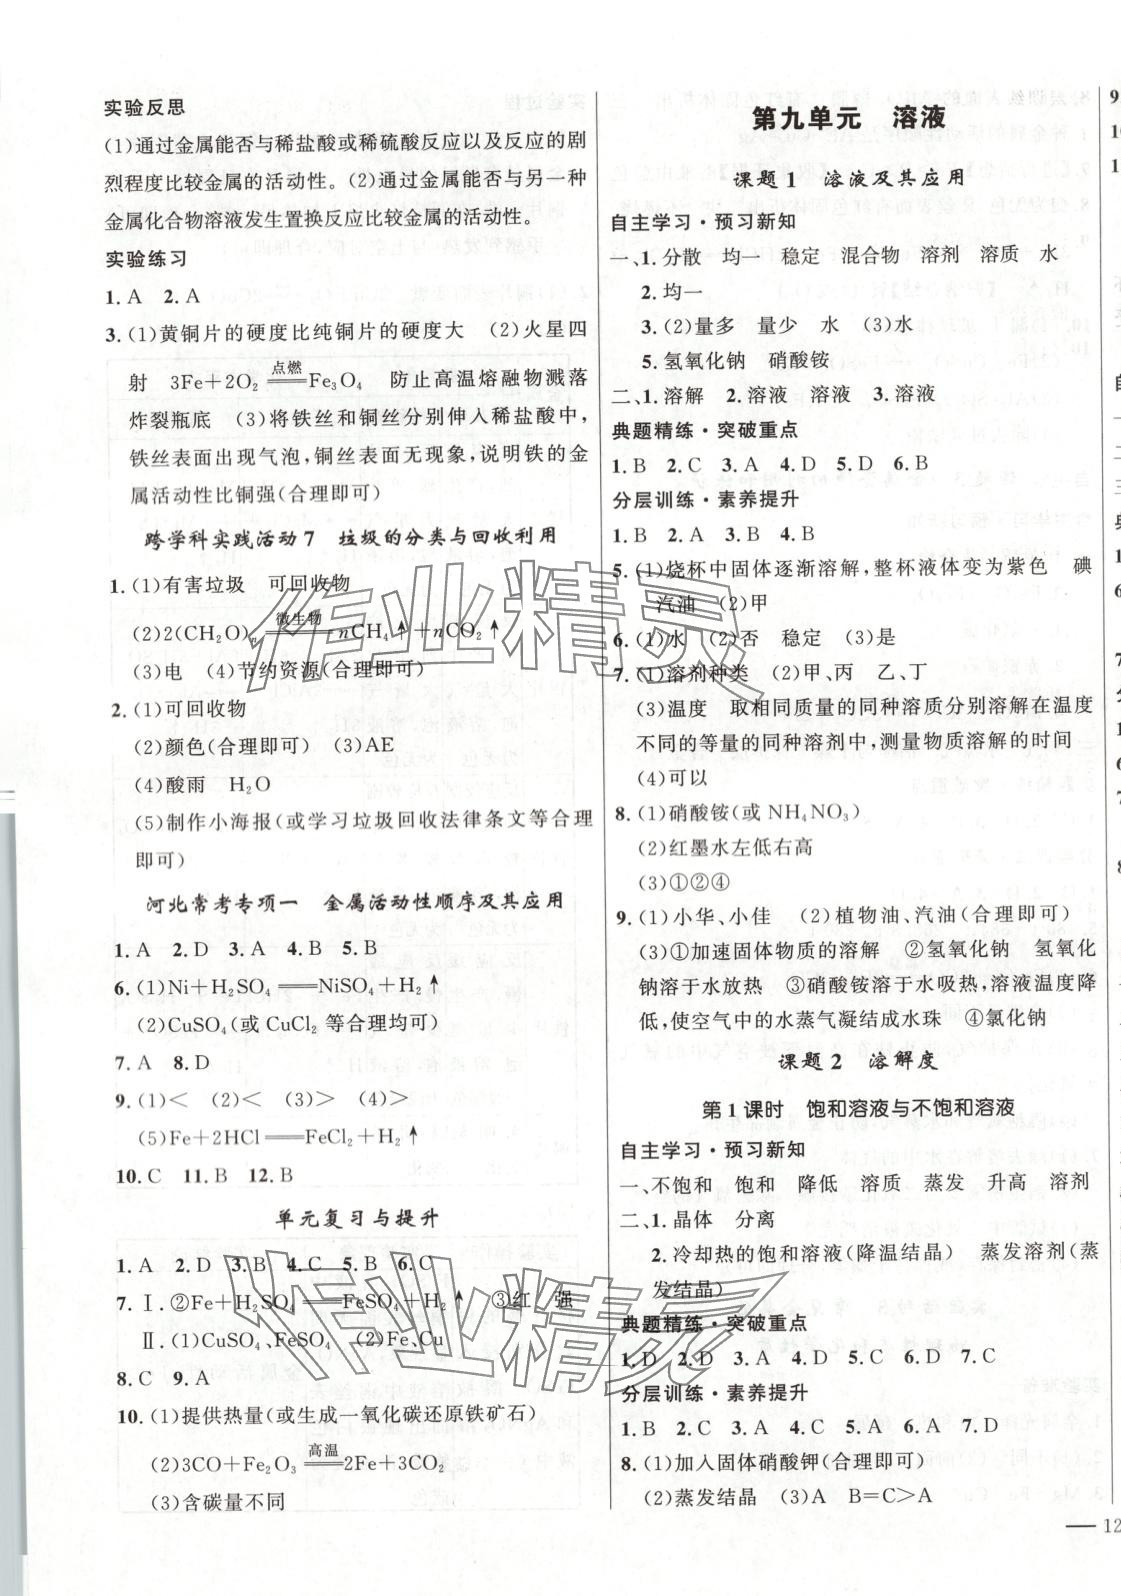 实验反思
(1)通过金属能否与稀盐酸或稀硫酸反应以及反应的剧
烈程度比较金属的活动性。(2)通过金属能否与另一种
金属化合物溶液发生置换反应比较金属的活动性。
实验练习
1. A 2. A
3. (1)黄铜片的硬度比纯铜片的硬度大 (2)火星四
射 3Fe+2O₂ ══点燃══ Fe₃O₄ 防止高温熔融物溅落
炸裂瓶底 (3)将铁丝和铜丝分别伸入稀盐酸中,
铁丝表面出现气泡,铜丝表面无现象,说明铁的金
属活动性比铜强(合理即可)
跨学科实践活动7 垃圾的分类与回收利用
1. (1)有害垃圾 可回收物
(2)2(CH₂O)ₙ ══微生物══ nCH₄↑+nCO₂↑
(3)电 (4)节约资源(合理即可)
2. (1)可回收物
(2)颜色(合理即可) (3)AE
(4)酸雨 H₂O
(5)制作小海报(或学习垃圾回收法律条文等合理
即可)
河北常考专项一 金属活动性顺序及其应用
1. A 2. D 3. A 4. B 5. B
6. (1)Ni+H₂SO₄══NiSO₄+H₂↑
(2)CuSO₄(或 CuCl₂ 等合理均可)
7. A 8. D
9. (1)< (2)< (3)> (4)>
(5)Fe+2HCl══FeCl₂+H₂↑
10. C 11. B 12. B
单元复习与提升
1. A 2. D 3. B 4. C 5. B 6. C
7. Ⅰ. ②Fe+H₂SO₄══FeSO₄+H₂↑ ③红 强
Ⅱ. (1)CuSO₄、FeSO₄ (2)Fe、Cu
8. C 9. A
10. (1)提供热量(或生成一氧化碳还原铁矿石)
(2)3CO+Fe₂O₃ ══高温══ 2Fe+3CO₂
(3)含碳量不同
第九单元 溶液
课题1 溶液及其应用
自主学习·预习新知
一、1. 分散 均一 稳定 混合物 溶剂 溶质 水
2. 均一
3. (2)量多 量少 水 (3)水
5. 氢氧化钠 硝酸铵
二、1. 溶解 2. 溶液 溶液 3. 溶液
典题精练·突破重点
1. B 2. C 3. A 4. D 5. D 6. B
分层训练·素养提升
1. B 2. A 3. B 4. B
5. (1)烧杯中固体逐渐溶解,整杯液体变为紫色 碘
汽油 (2)甲
6. (1)水 (2)否 稳定 (3)是
7. (1)溶剂种类 (2)甲、丙 乙、丁
(3)温度 取相同质量的同种溶质分别溶解在温度
不同的等量的同种溶剂中,测量物质溶解的时间
(4)可以
8. (1)硝酸铵(或 NH₄NO₃)
(2)红墨水左低右高
(3)①②④
9. (1)小华、小佳 (2)植物油、汽油(合理即可)
(3)①加速固体物质的溶解 ②氢氧化钠 氢氧化
钠溶于水放热 ③硝酸铵溶于水吸热,溶液温度降
低,使空气中的水蒸气凝结成水珠 ④氯化钠
课题2 溶解度
第1课时 饱和溶液与不饱和溶液
自主学习·预习新知
一、不饱和 饱和 降低 溶质 蒸发 升高 溶剂
二、1. 晶体 分离
2. 冷却热的饱和溶液(降温结晶) 蒸发溶剂(蒸
发结晶)
典题精练·突破重点
1. D 2. D 3. A 4. D 5. C 6. D 7. C
分层训练·素养提升
1. B 2. C 3. A 4. C 5. D 6. A 7. D
8. (1)加入固体硝酸钾(合理即可)
(2)蒸发结晶 (3)A B=C>A
作业精灵
作业精灵
— 12